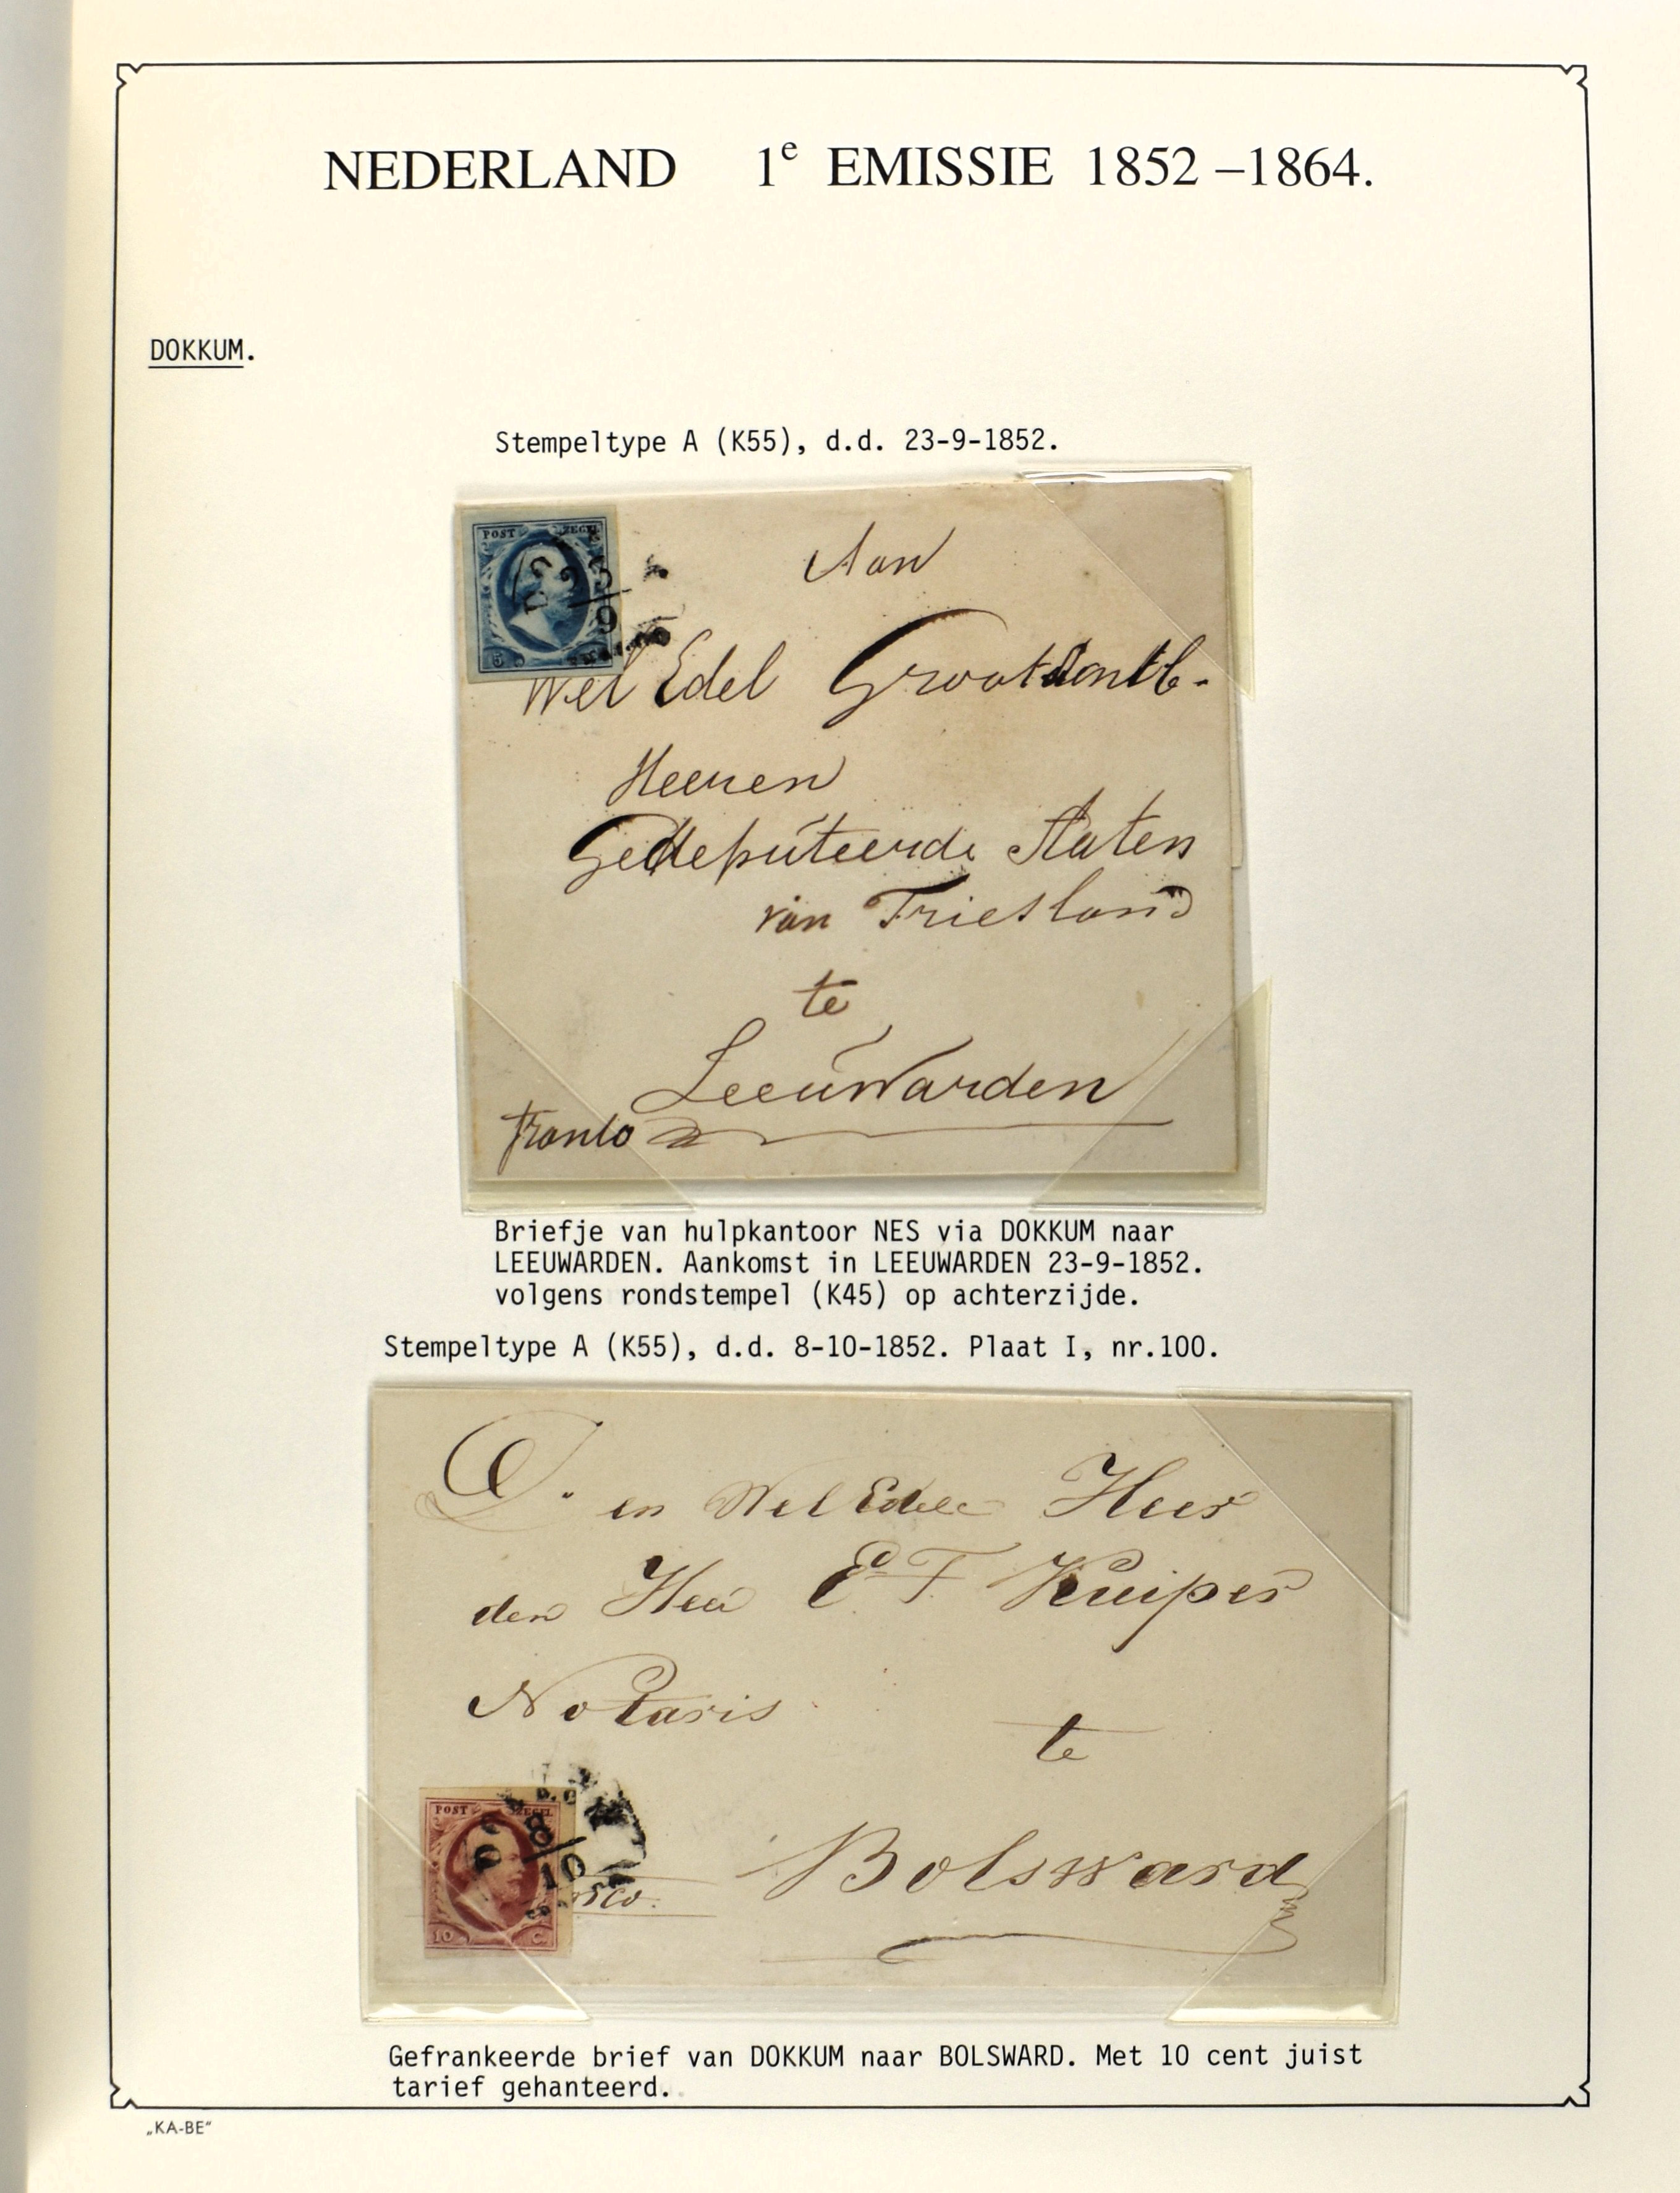 NEDERLAND 1e EMISSIE 1852 –1864.
DOKKUM.
Stempeltype A (K55), d.d. 23-9-1852.
POST ZEGEL
23
9
5
Aan
Wel Edel
Heeren
Gedeputeerde Staten
van Friesland
te
Leeuwarden
franco
Briefje van hulpkantoor NES via DOKKUM naar
LEEUWARDEN. Aankomst in LEEUWARDEN 23-9-1852.
volgens rondstempel (K45) op achterzijde.
Stempeltype A (K55), d.d. 8-10-1852. Plaat I, nr.100.
D. en Wel Edele Heer
den Heer E T Kuiper
Notaris
te
POST ZEGEL
8
10
10 C.
Bolsward
Gefrankeerde brief van DOKKUM naar BOLSWARD. Met 10 cent juist
tarief gehanteerd.
„KA-BE“